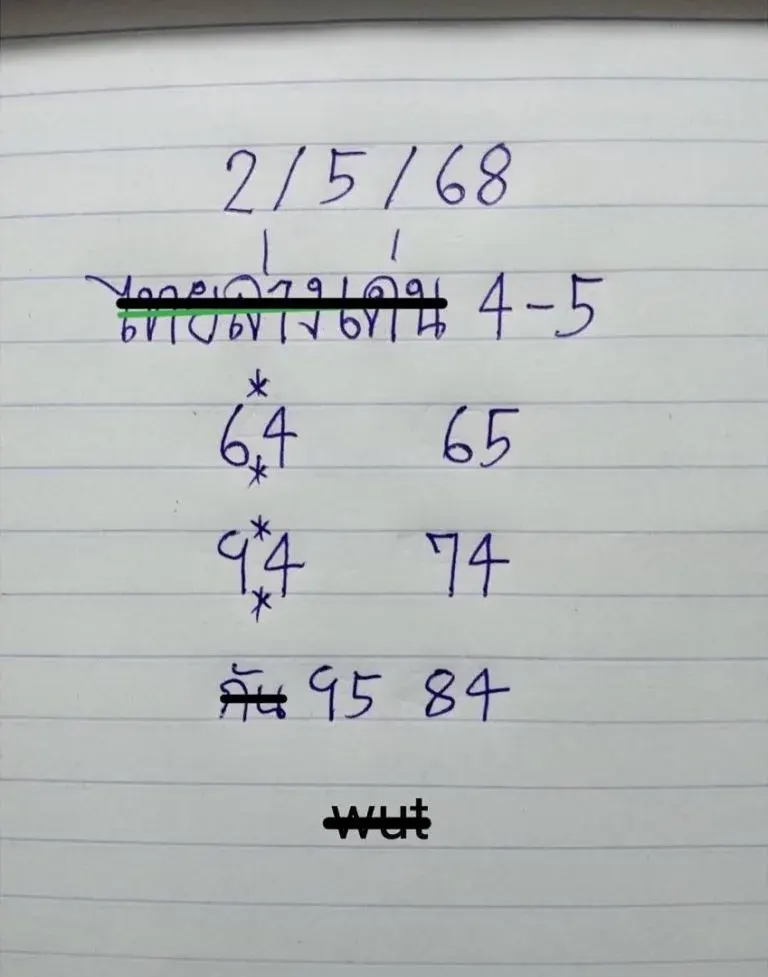 2/5/68
ไทยล่างเด่น 4-5
64 65
94 74
กัน 95 84
wut